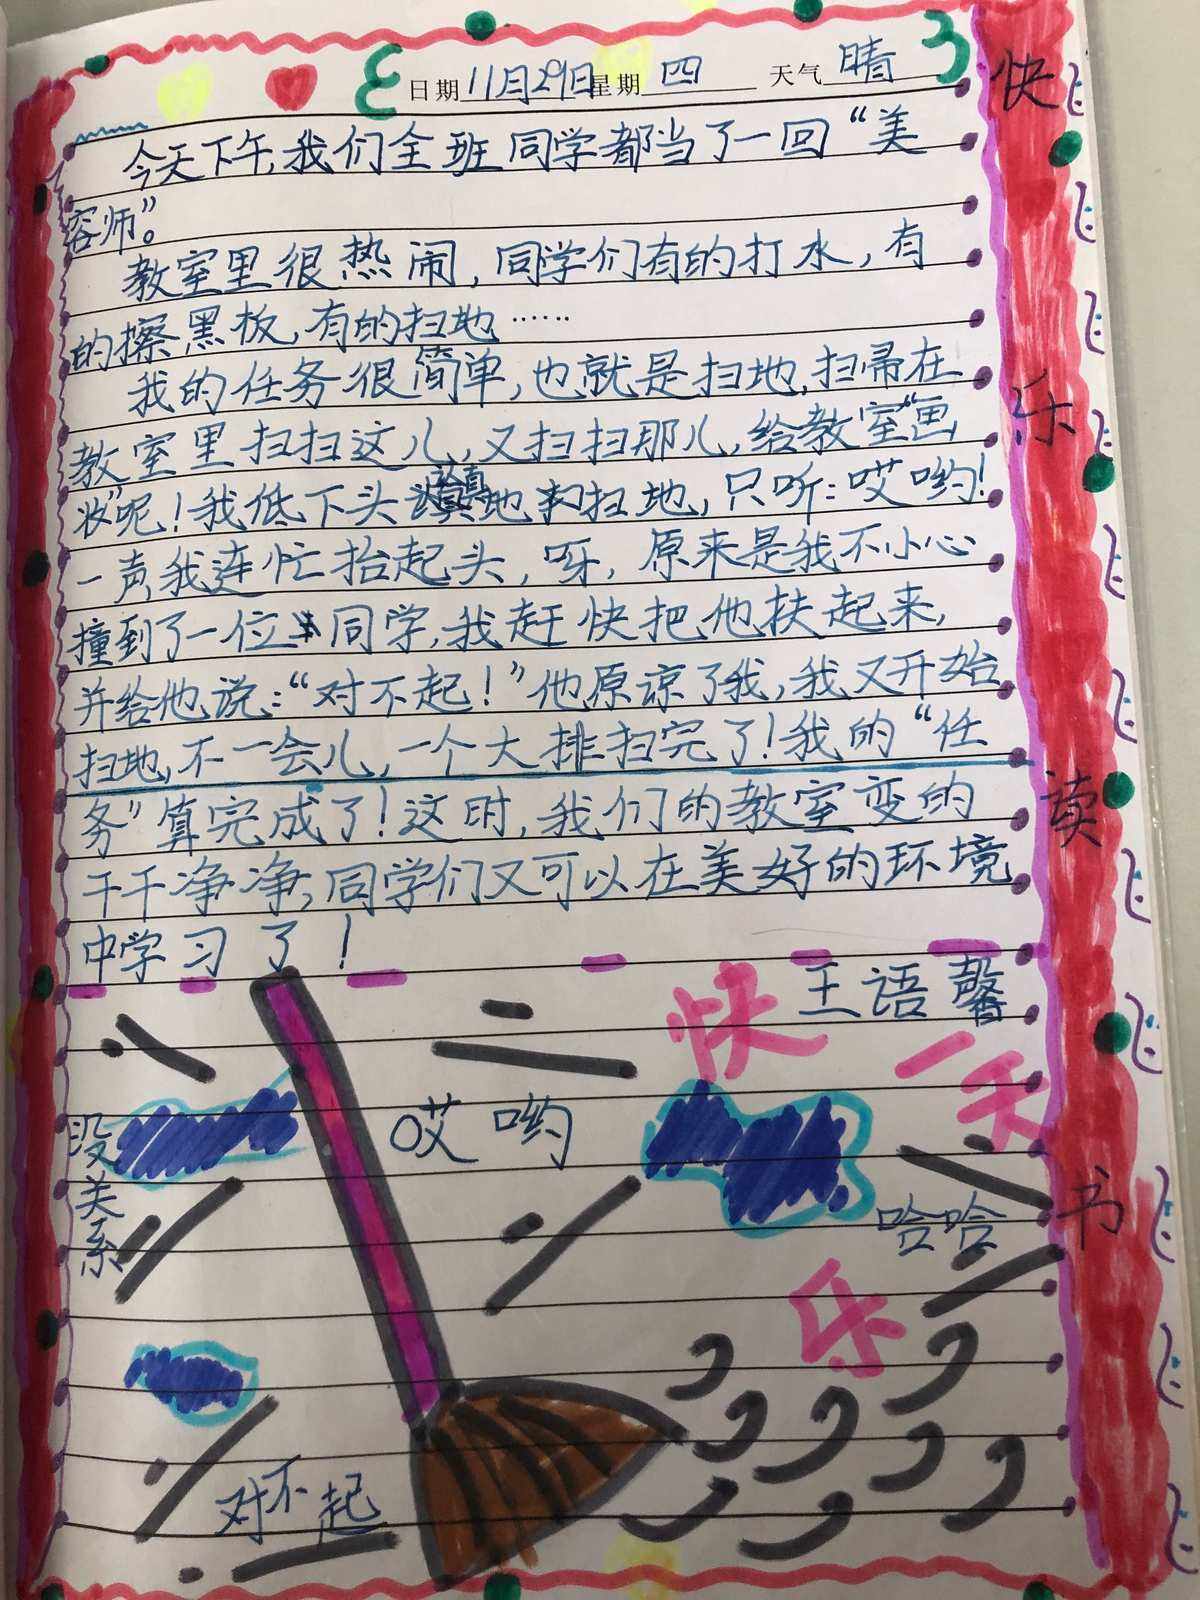 日期11月29日星期四 天气晴
今天下午,我们全班同学都当了一回“美
容师”。
教室里很热闹,同学们有的打水,有
的擦黑板,有的扫地……
我的任务很简单,也就是扫地,扫帚在
教室里扫扫这儿,又扫扫那儿,给教室“画
妆”呢!我低下头认真地扫地,只听:哎哟!
一声,我连忙抬起头,呀,原来是我不小心
撞到了一位同学,我赶快把他扶起来,
并给他说:“对不起!”他原谅了我,我又开始
扫地,不一会儿,一个大排扫完了!我的“任
务”算完成了!这时,我们的教室变的
干干净净,同学们又可以在美好的环境
中学习了!
王语馨
快乐一天
哎哟
没关系
哈哈
对不起
快乐读书